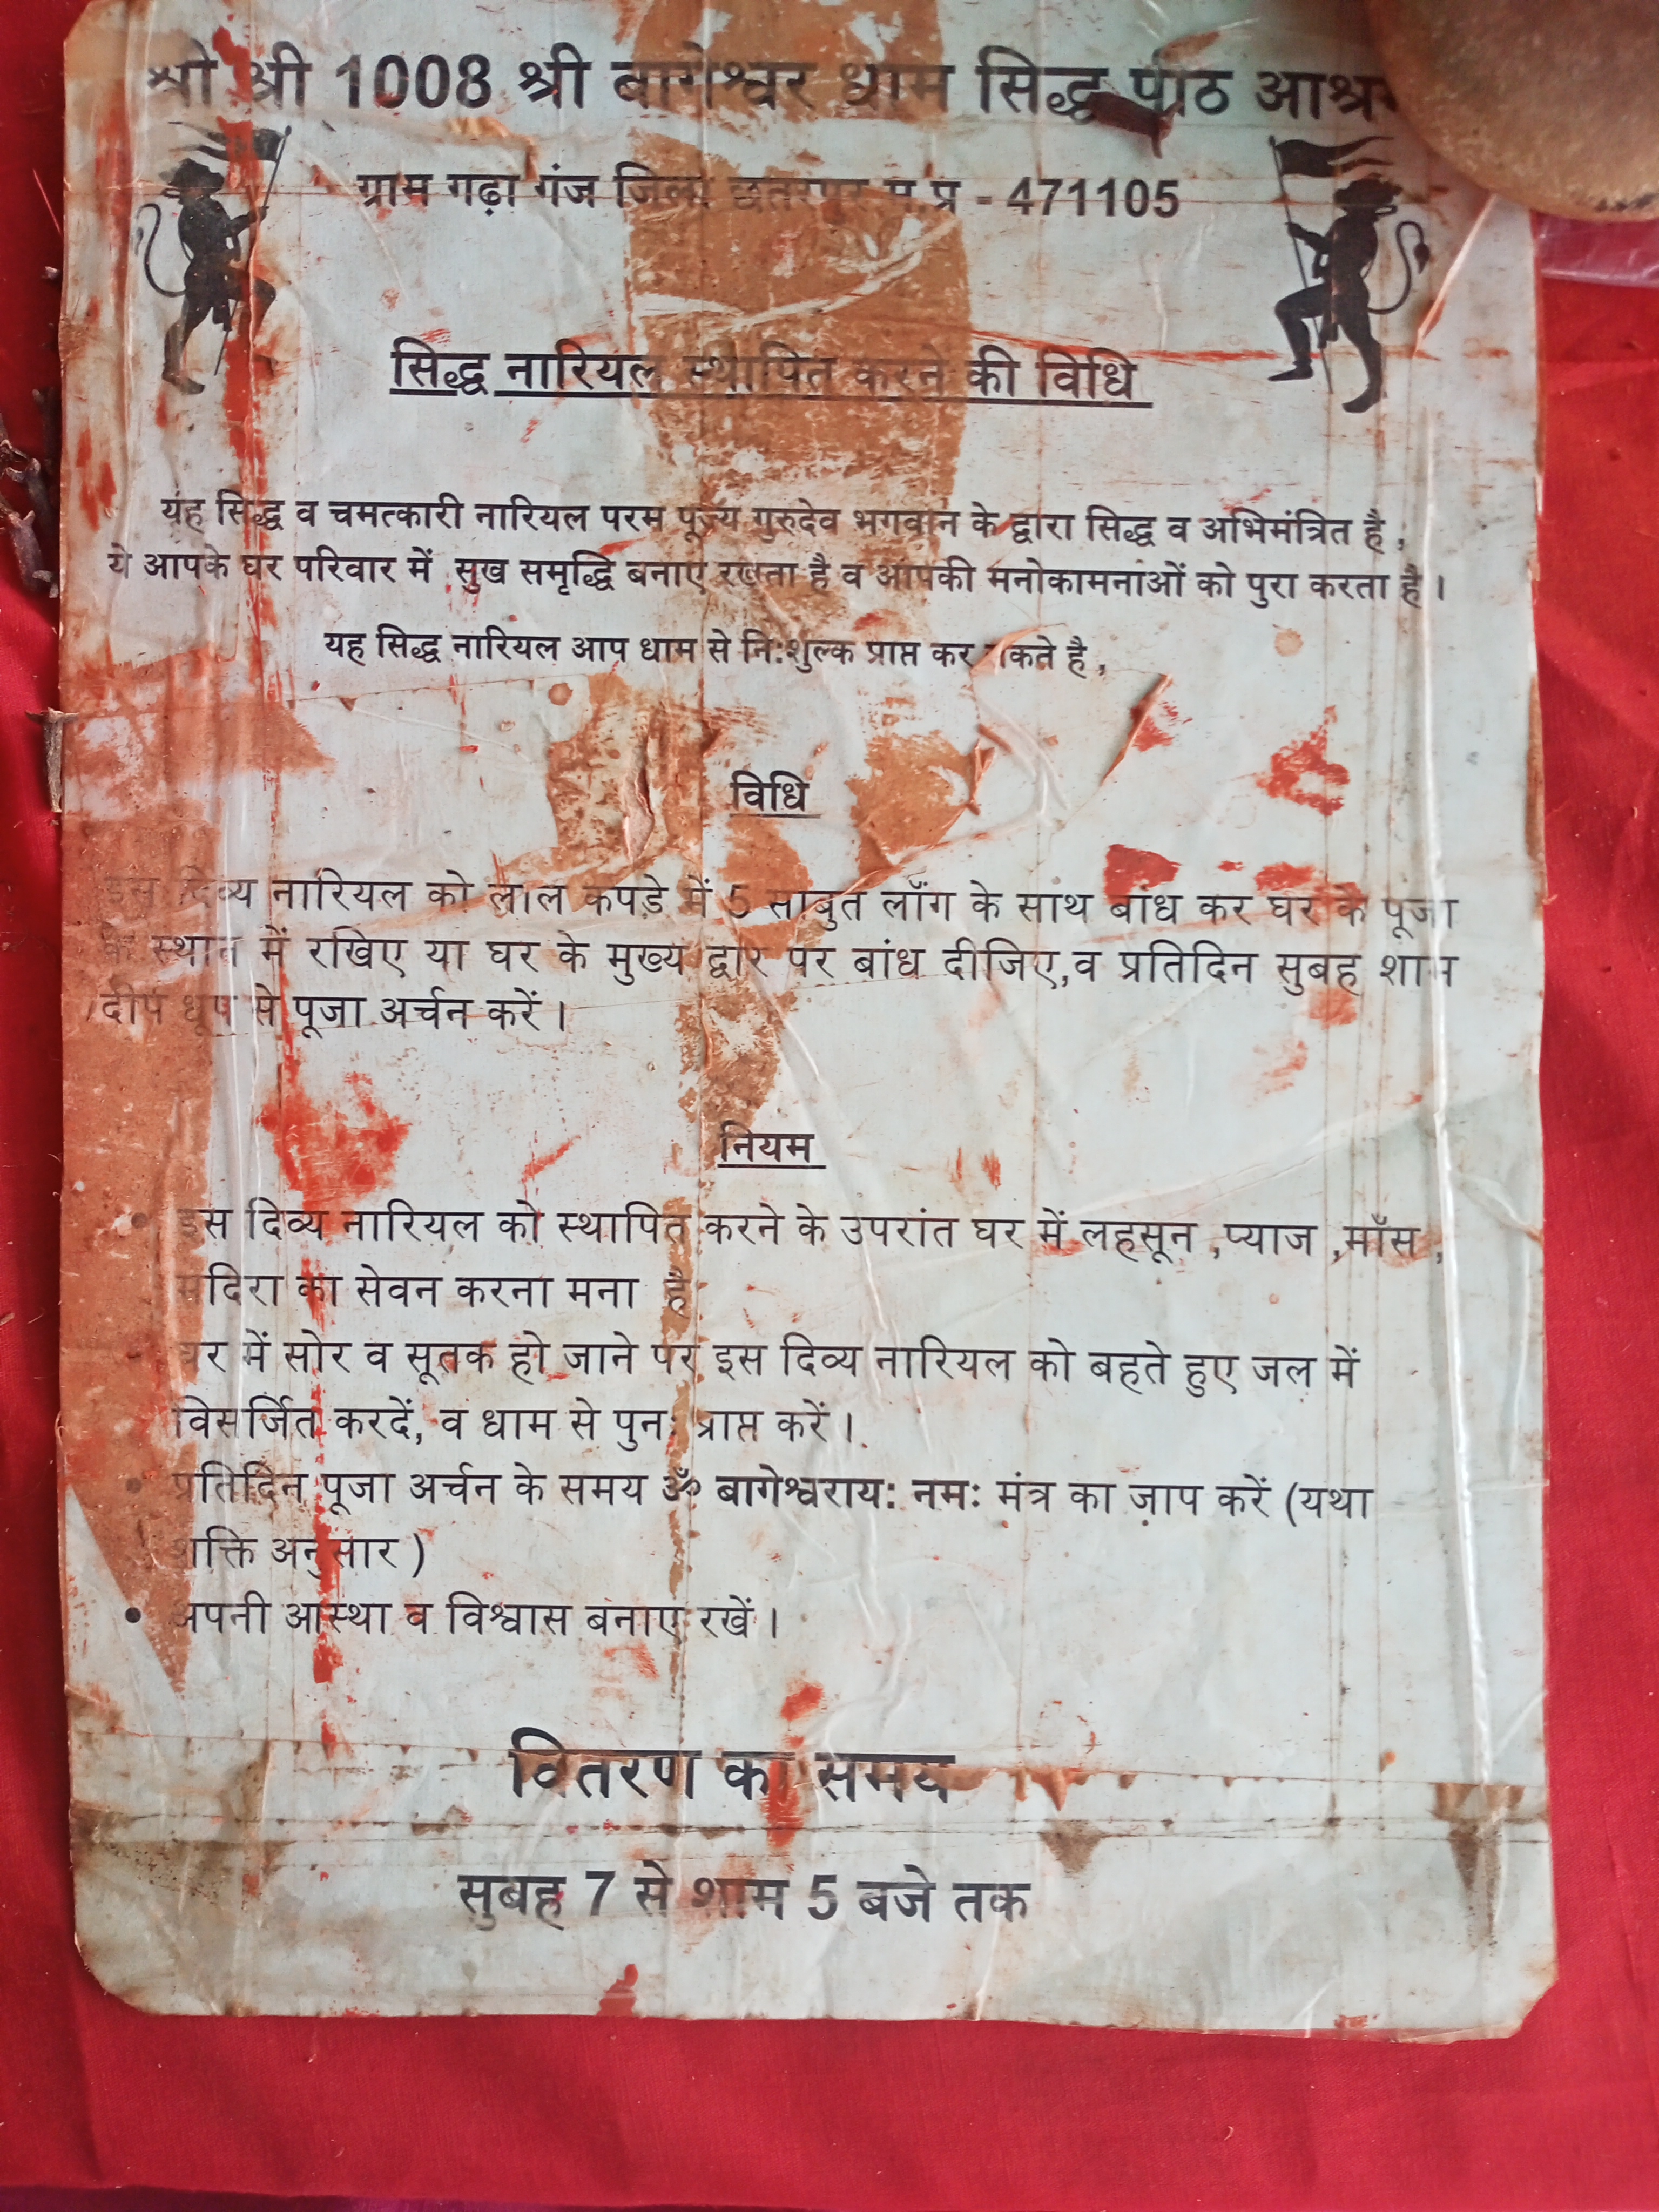 श्री श्री 1008 श्री बागेश्वर धाम सिद्ध पीठ
ग्राम गढ़ा गंज जिला छतरपुर म.प्र - 471105
सिद्ध नारियल स्थापित करने की विधि
यह सिद्ध व चमत्कारी नारियल परम पूज्य गुरुदेव भगवान के द्वारा सिद्ध व अभिमंत्रित है,
ये आपके घर परिवार में सुख समृद्धि बनाए रखता है व आपकी मनोकामनाओं को पुरा करता है।
यह सिद्ध नारियल आप धाम से नि:शुल्क प्राप्त कर सकते है,
विधि
इस दिव्य नारियल को लाल कपड़े में 5 साबुत लौंग के साथ बांध कर घर के पूजा
के स्थान में रखिए या घर के मुख्य द्वार पर बांध दीजिए,व प्रतिदिन सुबह शाम
दीप धूप से पूजा अर्चन करें।
नियम
• इस दिव्य नारियल को स्थापित करने के उपरांत घर में लहसून ,प्याज ,माँस ,
मदिरा का सेवन करना मना है
• घर में सोर व सूतक हो जाने पर इस दिव्य नारियल को बहते हुए जल में
विसर्जित करदें, व धाम से पुन: प्राप्त करें।
• प्रतिदिन पूजा अर्चन के समय ॐ बागेश्वराय: नम: मंत्र का जाप करें (यथा
शक्ति अनुसार )
• अपनी आस्था व विश्वास बनाए रखें।
वितरण का समय
सुबह 7 से शाम 5 बजे तक